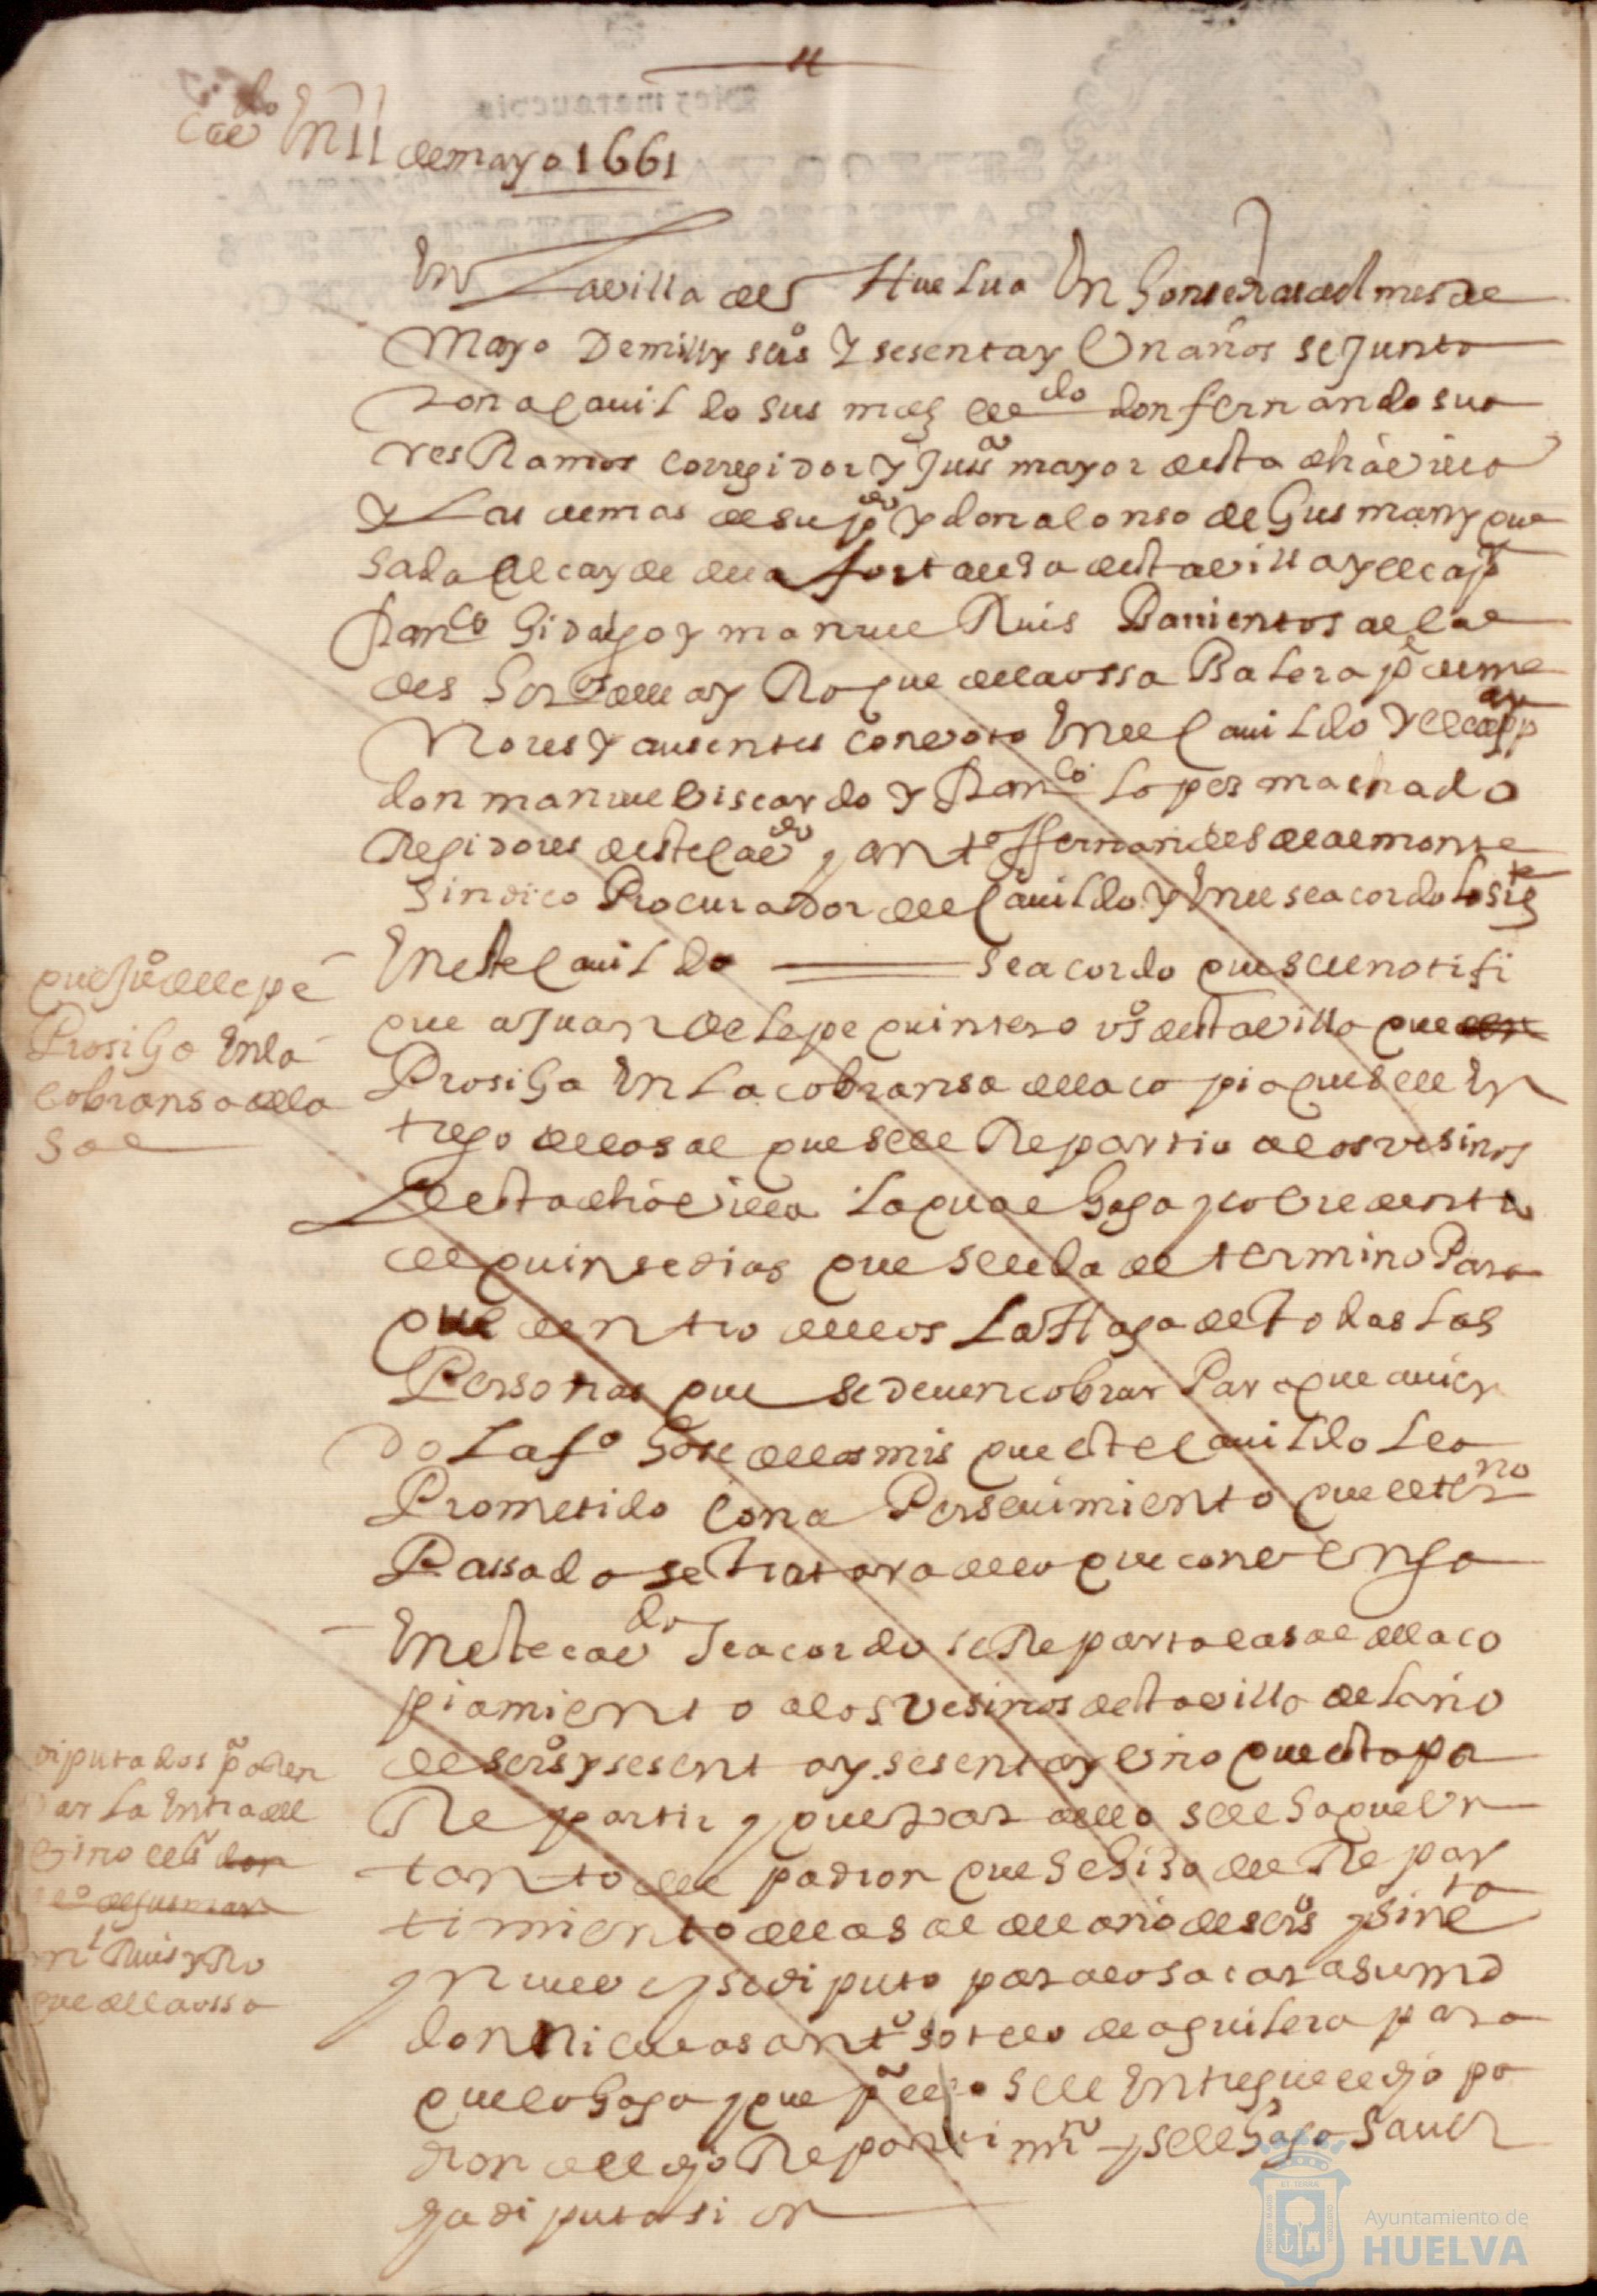 Cavdo En 11 de mayo 1661
En La villa de Huelua En honse dias del mes de
Mayo De mill y seisos Y sesenta y Un años se junta
ron a Cauildo sus mds el ldo don fernando sua
res Ramos corregidor Y Jusa mayor desta dha villa
Y Las demas de su pdo Y don alonso de Gusman y que
sada alcayde de la fortalesa desta villa y el cap
Franco hidalgo y manuel Ruis Barrientos alcal
des hordos della y Roque de la ossa Balera pe de me
Nores Y ausentes con voto En el Cauildo Y el capp
don manuel Viscardo Y Franco Lopes machado
Regidores deste Cavdo y anto ffernandes de almonte
Sindico Procurador del Cauildo Y En el se acordo Lo sigte
En este Cauildo se acordo que se le notifi
que a Juan de Lepe quintero vo desta villa que
Prosiga En La cobransa de la copia que se le En
trego de la sal que se le Repartio a los vesinos
desta dha villa La qual haga y cobre dentro
de quinse dias que se le da de termino Para
que dentro dellos La Haga de todas Las
Personas que se deuen cobrar Para que auien
do La fo Gose de los mis que este Cauildo Le a
Prometido Con apersevimiento que el terno
Passado se tratara de lo que convenga
En este cavdo se acordo se Reparta la sal del aco
piamiento a los vesinos desta villa del año
de seisos y sesenta y sesenta y uno que esta por
Repartir y que para ello se le saque Un
tanto del padron que se hiso del Repar
timiento de la sal del año de seisos y sincta
y nueve y se diputo para lo sacar a su md
don Nicolas anto sotelo de aguilera para
que lo haga y que pa ello se le Entregue el dho pa
dron del dho Repartimto y se le haga Saver
la diputasion
que Juo de lepe
Prosiga En la
cobransa de la
Sal
diputados pa
La Entra del
Vino el sr don
de gusman
ml Ruis y Ro
que de la ossa
Ayuntamiento de
HUELVA